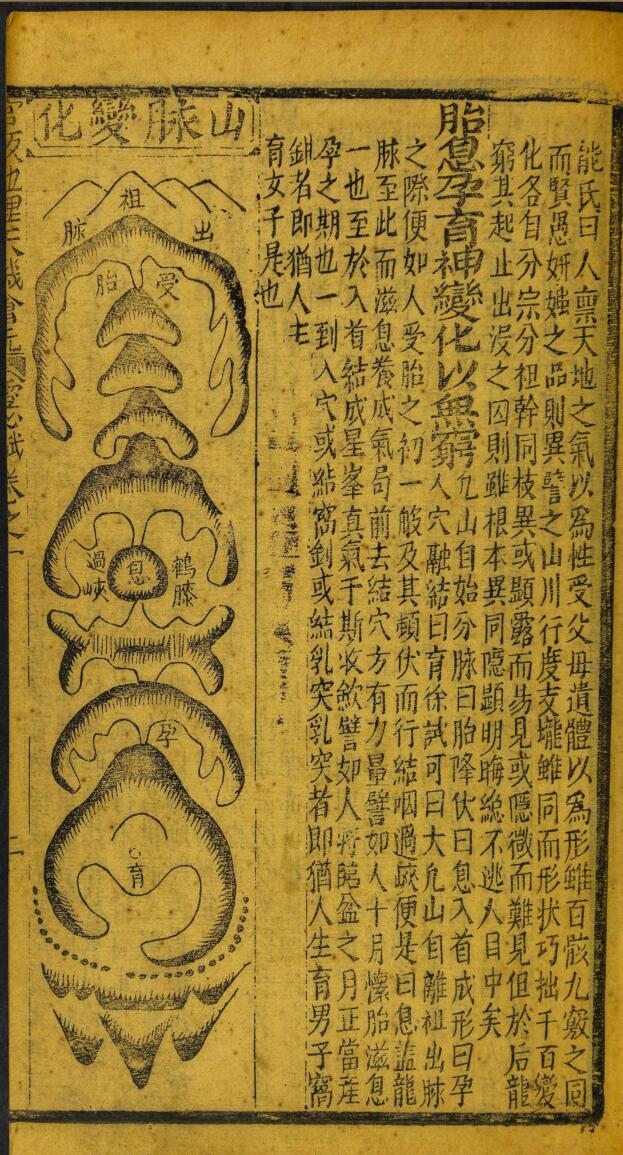 熊氏曰人禀天地之氣以爲性受父母遺體以爲形雖百骸九竅之同
而賢愚妍媸之品則異譬之山川行度支壠雖同而形状巧拙千百變
化各自分宗分祖幹同枝異或顕露而易見或隠微而難見但於后龍
窮其起止出没之因則雖根本異同隠顕明晦緫不逃人目中矣
胎息孕育神變化以無窮凢山自始分脉曰胎降伏曰息入首成形曰孕
入穴融結曰育徐試可曰大凢山自離祖出脉
之際便如人受胎之初一般及其頓伏而行結咽過峽便是曰息盖龍
脉至此而滋息養成氣局前去結穴方有力量譬如人十月懷胎滋息
一也至於入首結成星峯真氣于斯收歛譬如人將臨盆之月正當産
孕之期也一到入穴或結窩鉗或結乳突乳突者即猶人生育男子窩
鉗者即猶人生
育女子是也
山脉變化
祖
出
脉
受
胎
鶴膝
息
過峽
孕
育
卷之一
二